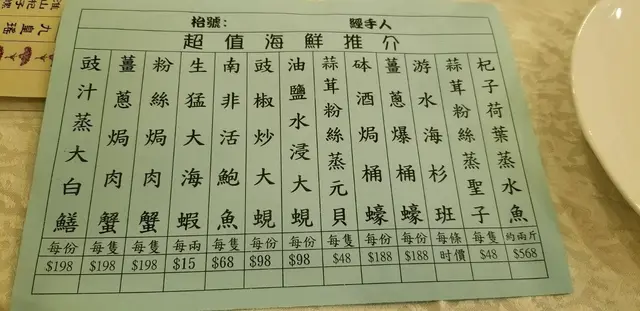 枱號：
經手人
超值海鮮推介
杞子荷葉蒸水魚
約兩斤
$568
蒜茸粉絲蒸聖子
每隻
$48
游水海杉班
每條
时價
薑蔥爆桶蠔
每份
$188
砵酒焗桶蠔
每份
$188
蒜茸粉絲蒸元貝
每隻
$48
油鹽水浸大蜆
每份
$98
豉椒炒大蜆
每份
$98
南非活鮑魚
每隻
$68
生猛大海蝦
每兩
$15
粉絲焗肉蟹
每隻
$198
薑蔥焗肉蟹
每隻
$198
豉汁蒸大白鱔
每份
$198
九皇